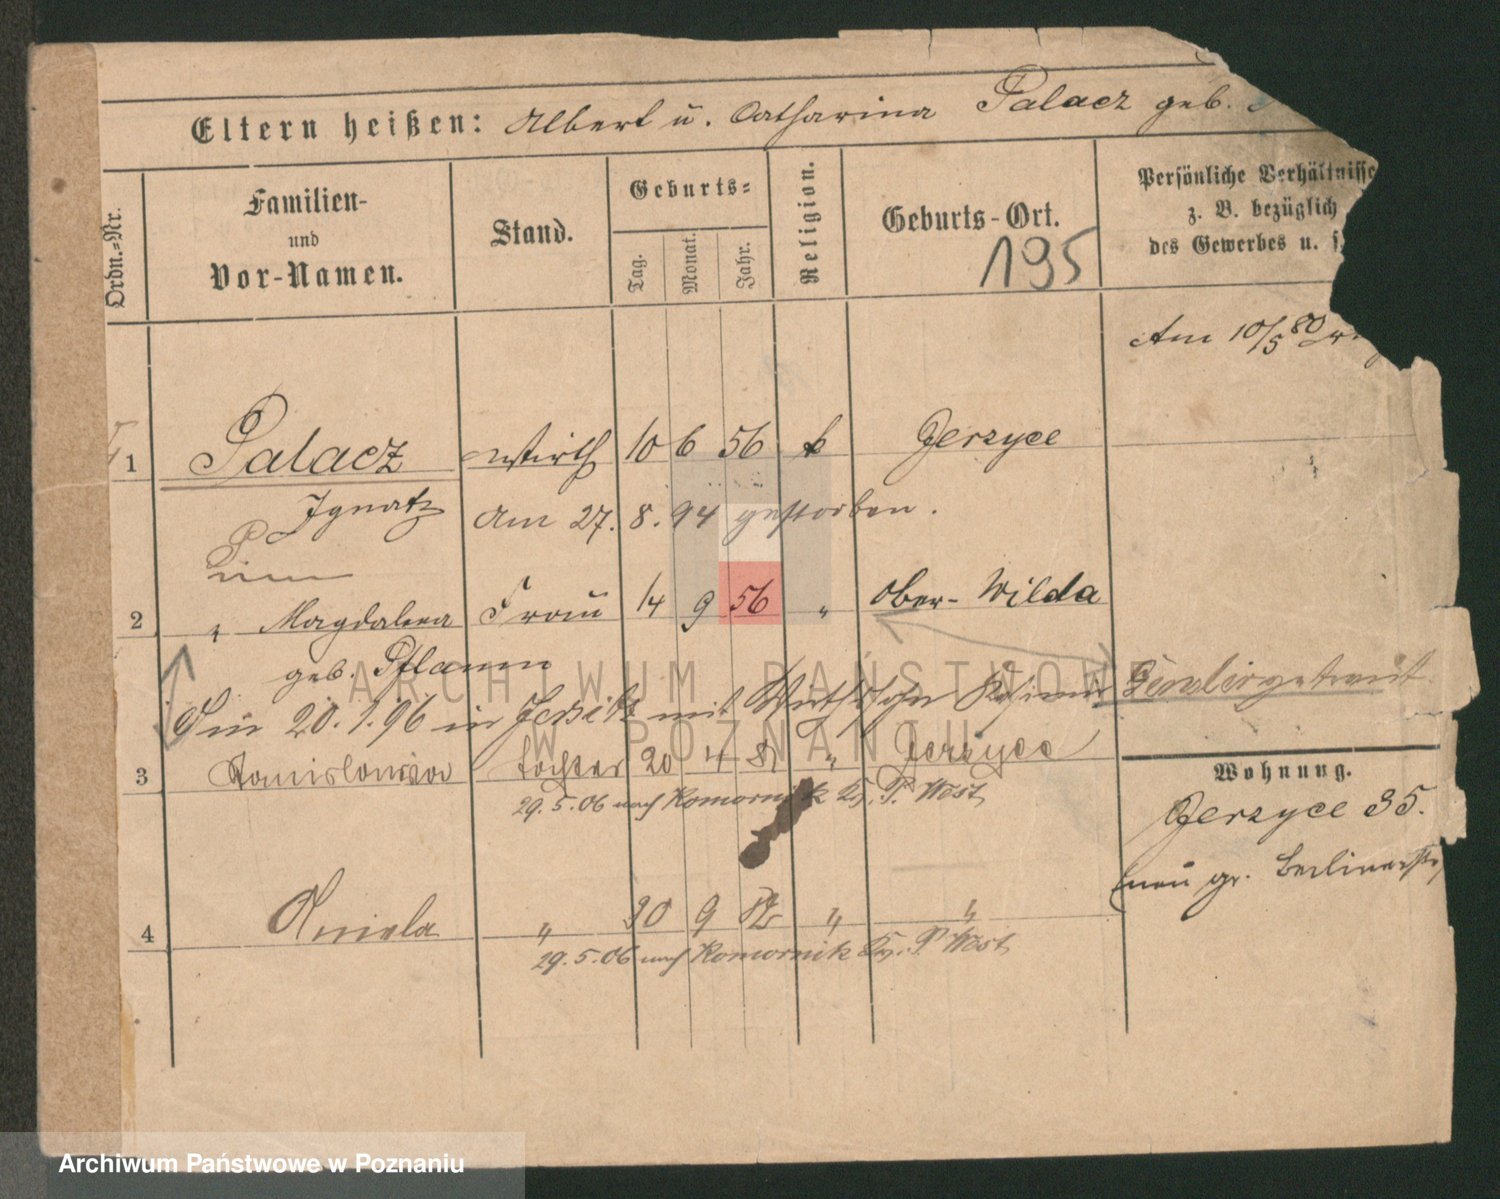 Eltern heißen: Albert u. Catharina Palacz geb.
Ordn.-Nr.
Familien-
und
Vor-Namen.
Stand.
Geburts-
Tag. Monat. Jahr.
Religion.
Geburts-Ort.
195
Persönliche Verhältnisse
z. B. bezüglich
des Gewerbes u. s.
Am 10/5 80
1 Palacz Wirth 10 6 56 k Jerzyce
Ignatz Am 27. 8. 94 gestorben.
2 " Magdalena Frau 14 9 56 " Ober-Wilda
geb. Pflaum
20.1.96 in Jersitz mit
3 Stanislawa Tochter 20 4 81 " Jerzyce
29.5.06 nach Komornik Kr. P. West
Wohnung.
Jerzyce 35.
neu gr. Berlinerstr
4 Aniela " 20 9 82 " "
29.5.06 nach Komornik Kr. P. West
ARCHIWUM PAŃSTWOWE
W POZNANIU
Archiwum Państwowe w Poznaniu